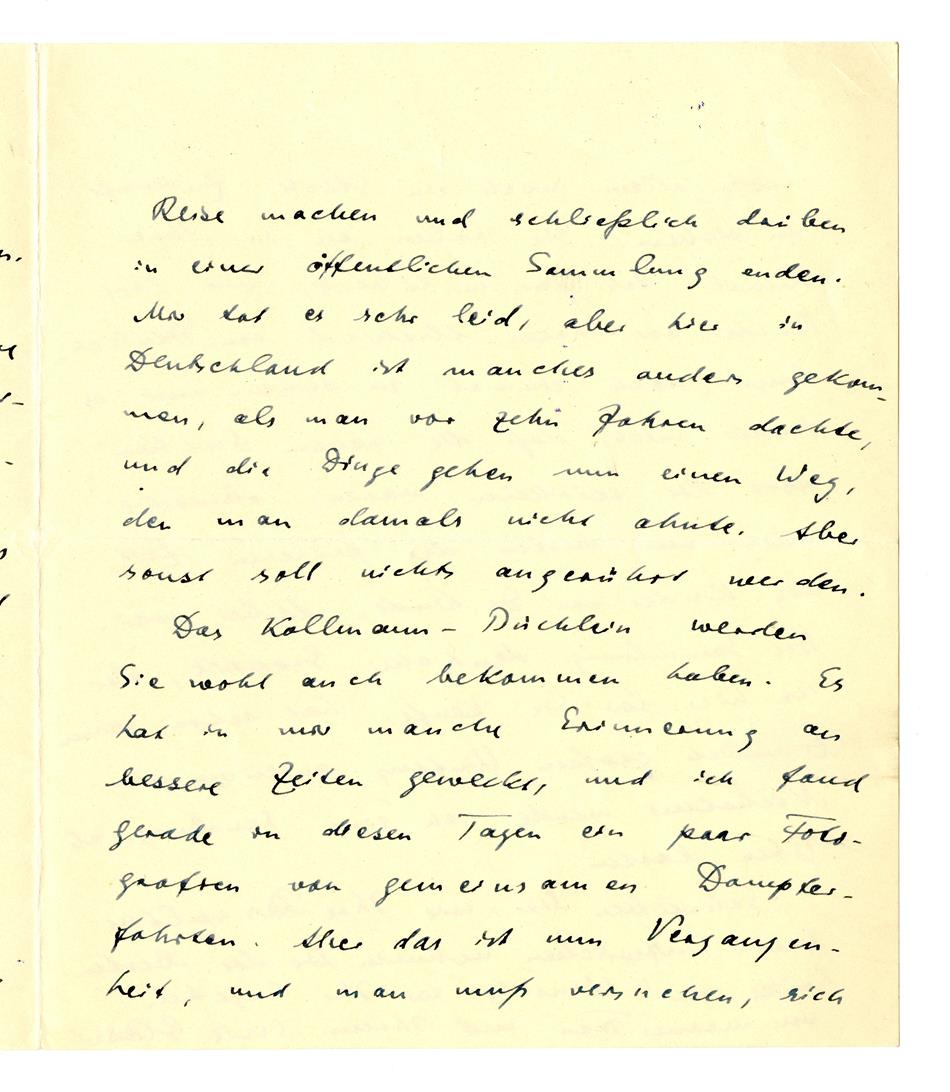 Reise machen und schließlich drüben
in einer öffentlichen Sammlung enden.
Mir tat es sehr leid, aber hier in
Deutschland ist manches anders gekom-
men, als man vor zehn Jahren dachte,
und die Dinge gehen nun einen Weg,
den man damals nicht ahnte. Aber
sonst soll nichts angerührt werden.
Das Kollmann-Büchlein werden
Sie wohl auch bekommen haben. Es
hat in mir manche Erinnerung an
bessere Zeiten geweckt, und ich fand
gerade in diesen Tagen ein paar Foto-
grafien von gemeinsamen Dampfer-
fahrten. Aber das ist nun Vergangen-
heit, und man muß versuchen, sich